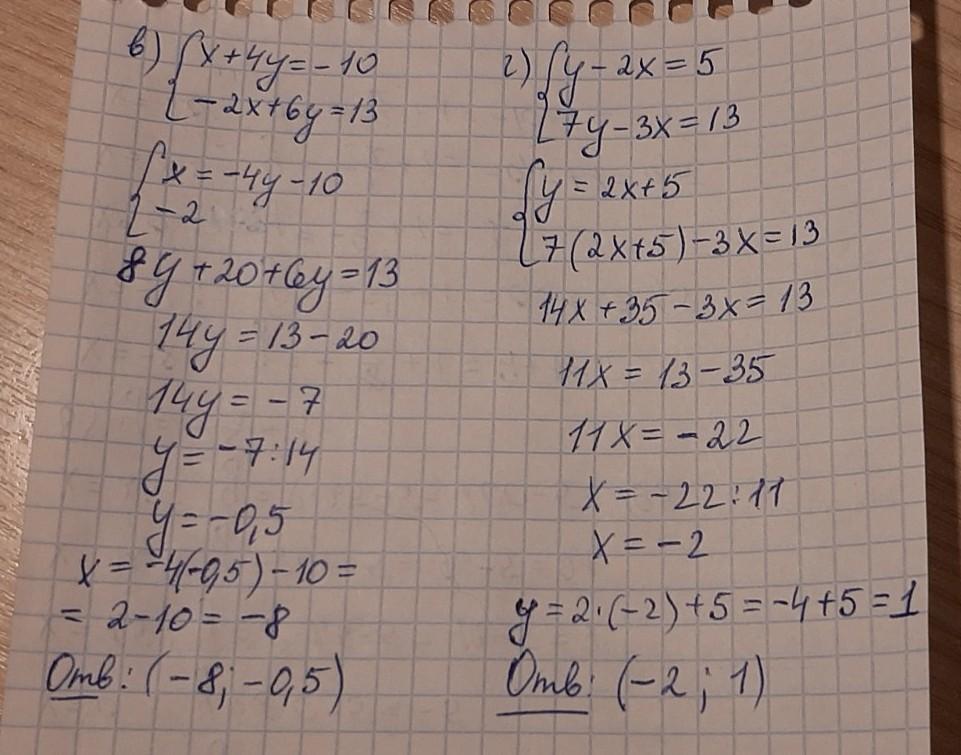 в) { x+4y=-10
-2x+6y=13
{ x = -4y-10
-2
8y+20+6y=13
14y=13-20
14y=-7
y=-7:14
y=-0,5
x = -4(-0,5)-10=
= 2-10= -8
Отв: (-8; -0,5)
г) { y-2x=5
7y-3x=13
{ y = 2x+5
7(2x+5)-3x=13
14x+35-3x=13
11x = 13-35
11x=-22
x=-22:11
x=-2
y=2·(-2)+5=-4+5=1
Отв: (-2; 1)